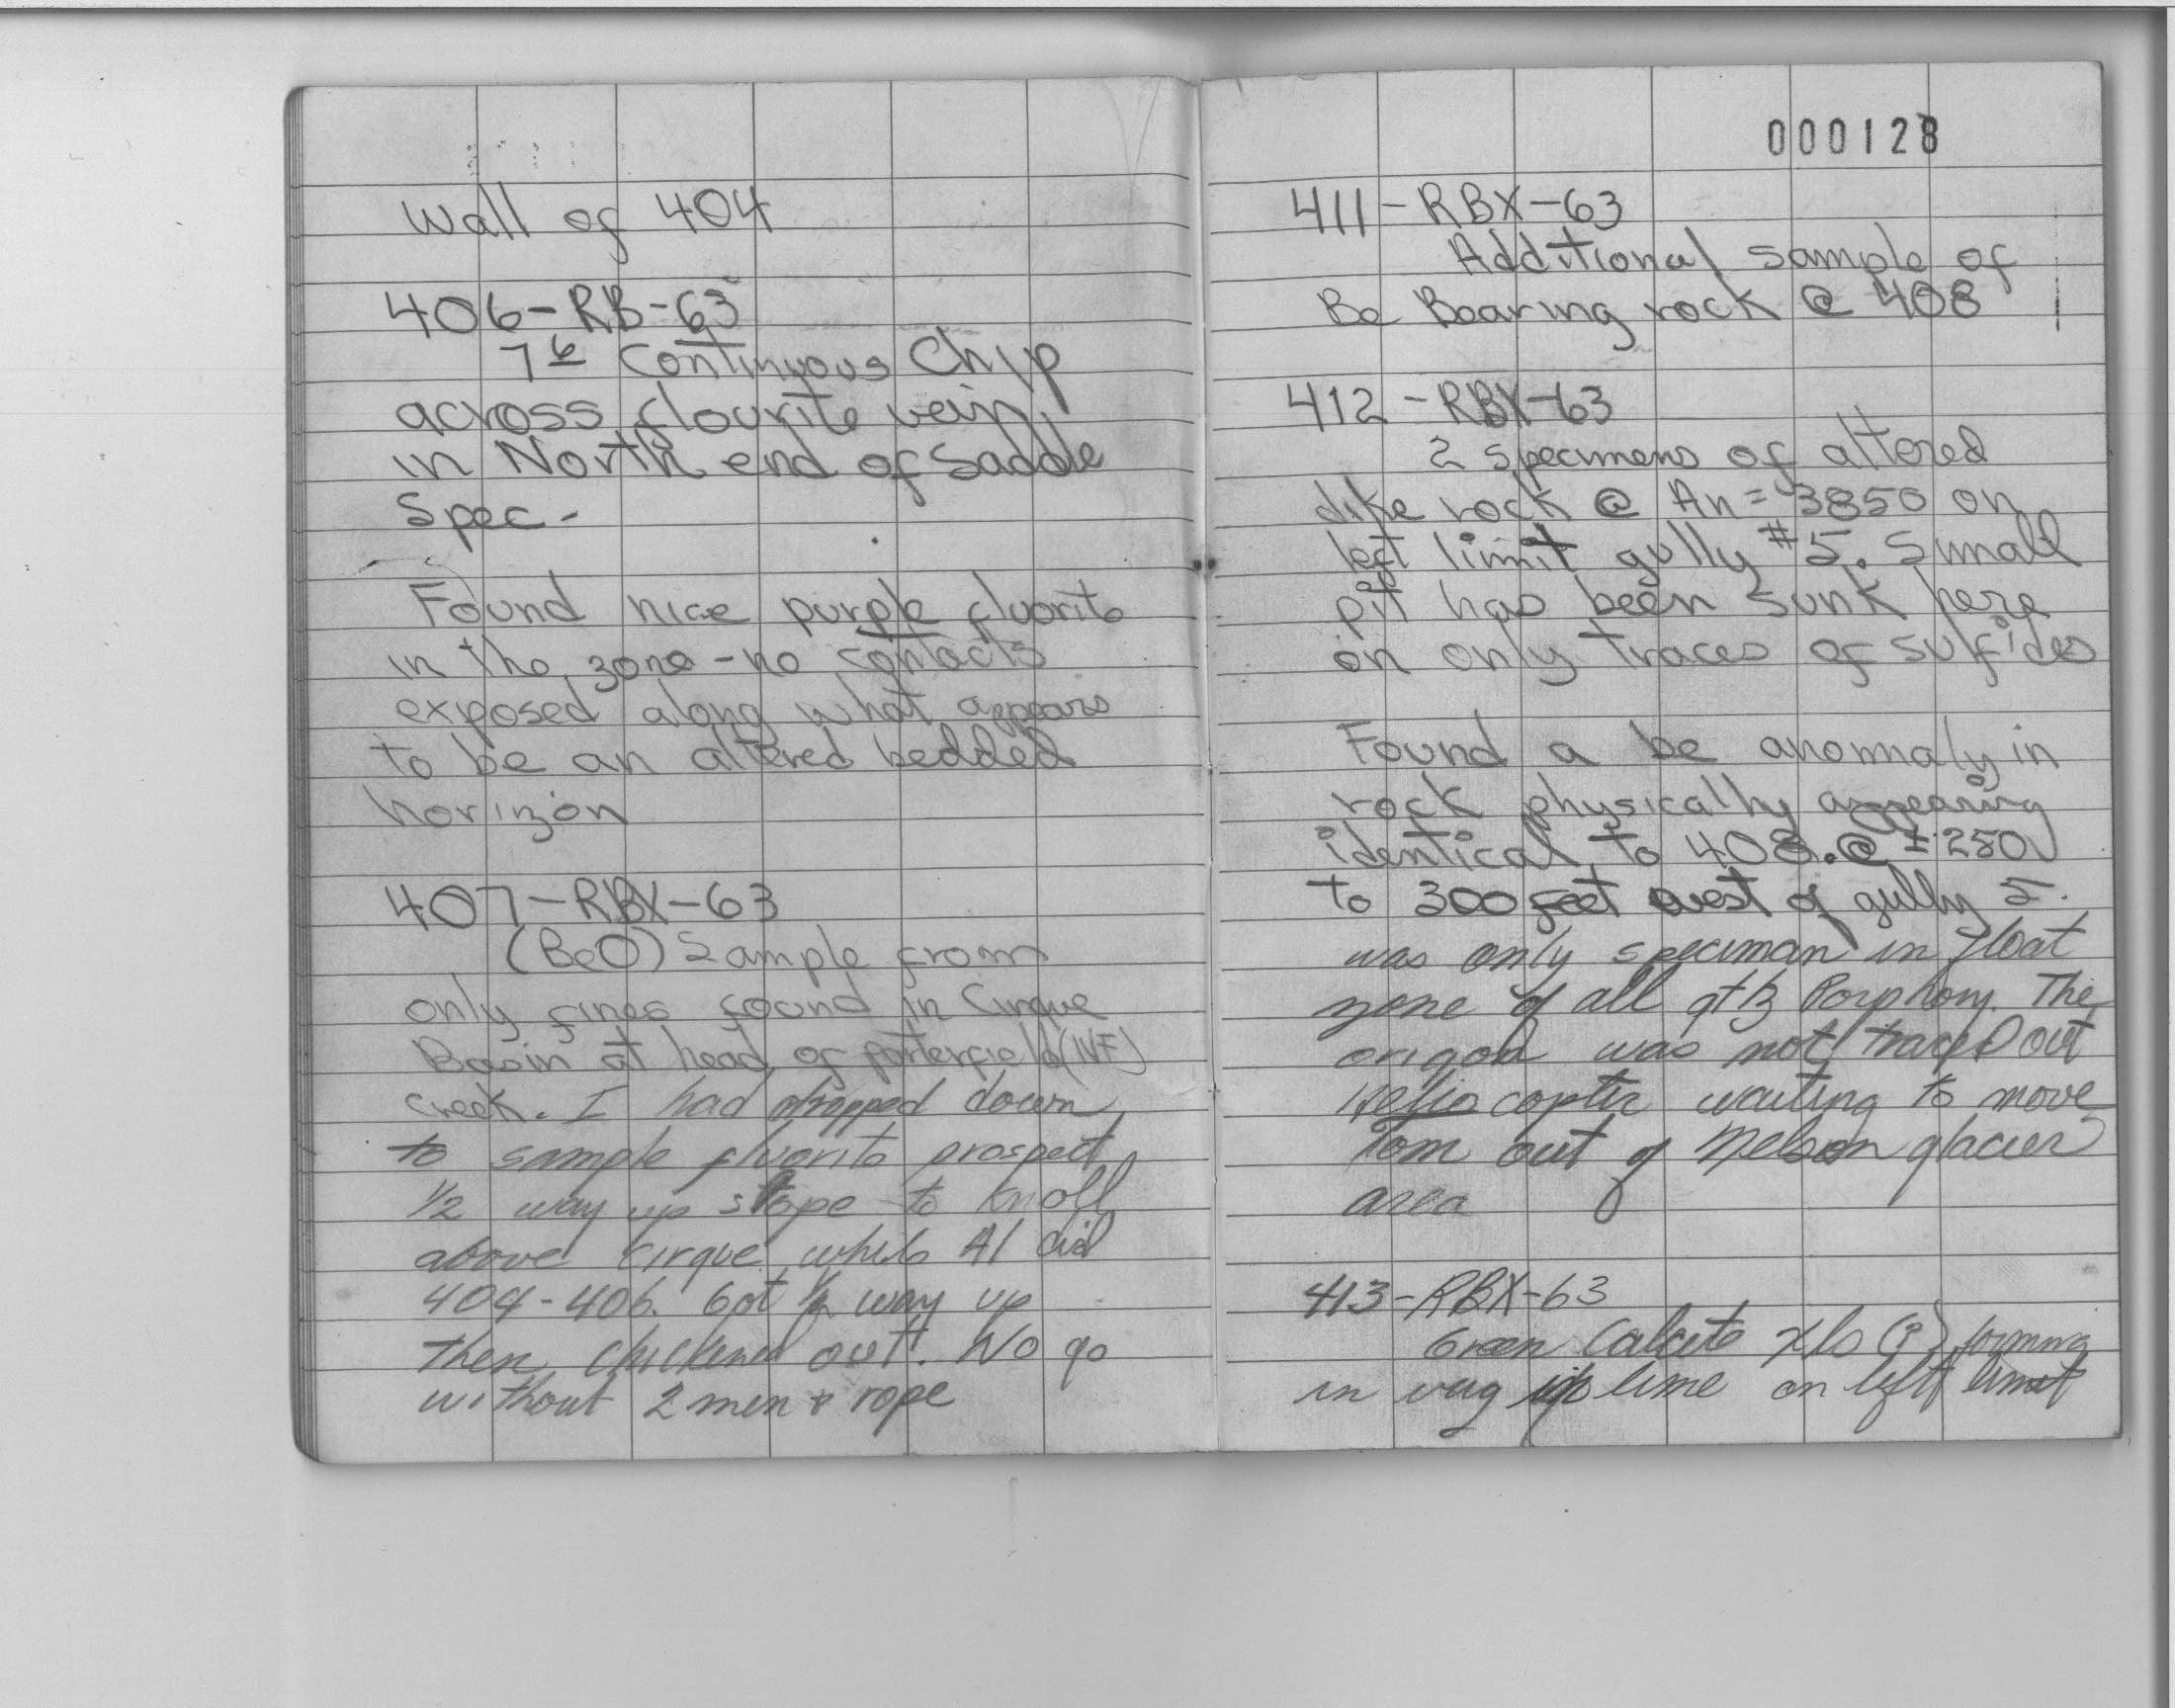 Wall of 404
406-RB-63
7 6 Continuous Chip
across flourite vein
in North end of Saddle
Spec-
Found nice purple fluorite
in the zone - no contacts
exposed along what appears
to be an altered bedded
horizon
407-RBX-63
(BeO) Sample from
only fines found in Cirque
Basin at head of porterfield
creek. I had dropped down
to sample fluorite prospect
1/2 way up slope to knoll
above cirque while Al did
404-406. Got 1/2 way up
then chickened out! No go
without 2 men & rope
000128
411-RBX-63
Additional sample of
Be Bearing rock @ 408
412-RBX-63
2 specimens of altered
dike rock @ An = 3850 on
left limit gully #5. Small
pit has been sunk here
on only traces of sulfides
Found a be anomaly in
rock physically appearing
identical to 408. @ ± 250
to 300 feet west of gully 5.
was only speciman in float
zone of all qtz Porphory. The
origon was not traced out
Heliocopter waiting to move
Tom out of Nelson glacier
area
413-RBX-63
Green Calcite xls (?) forming
in vug in lime on left limit